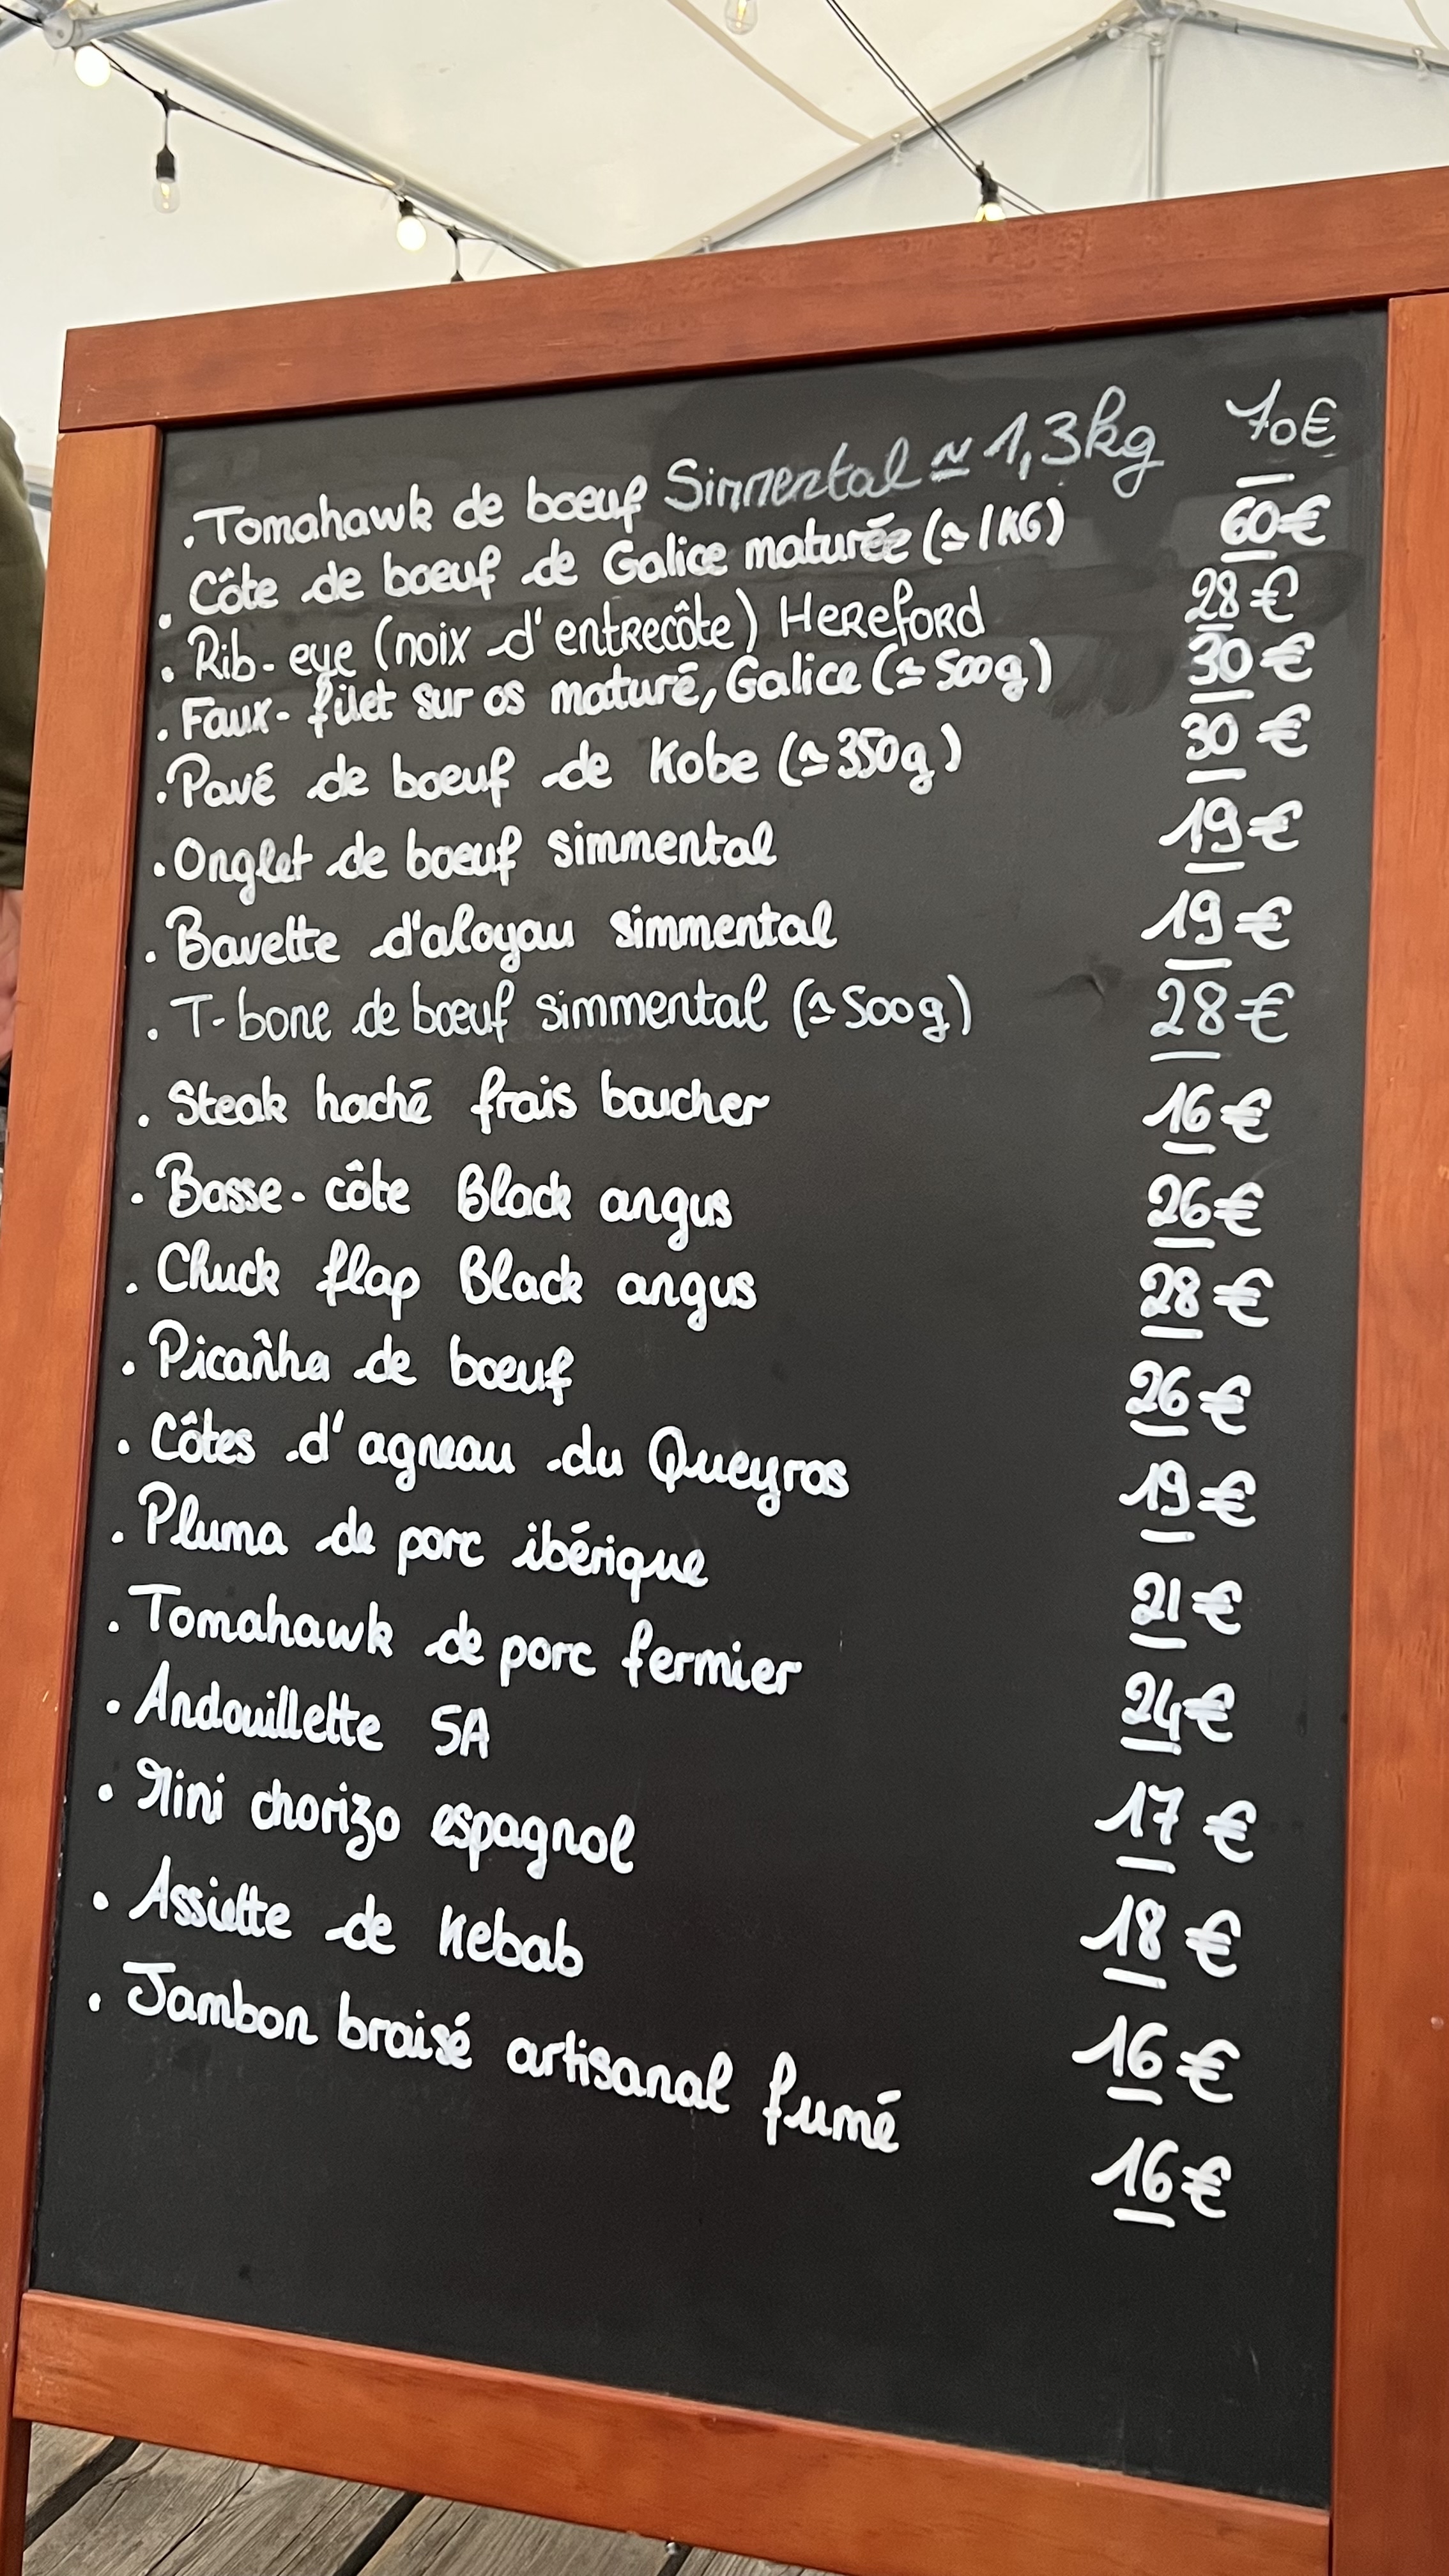 . Tomahawk de boeuf Simmental ≃ 1,3kg 70€
. Côte de boeuf de Galice maturée (≃ 1KG) 60€
. Rib-eye (noix d'entrecôte) Hereford 28€
. Faux-filet sur os maturé, Galice (≃ 500g) 30€
. Pavé de boeuf de Kobe (≃ 350g) 30€
. Onglet de boeuf simmental 19€
. Bavette d'aloyau simmental 19€
. T-bone de boeuf simmental (≃ 500g) 28€
. Steak haché frais boucher 16€
. Basse-côte Black angus 26€
. Chuck flap Black angus 28€
. Picañha de boeuf 26€
. Côtes d'agneau du Queyras 19€
. Pluma de porc ibérique 21€
. Tomahawk de porc fermier 24€
. Andouillette 5A 17€
. Mini chorizo espagnol 18€
. Assiette de Kebab 16€
. Jambon braisé artisanal fumé 16€